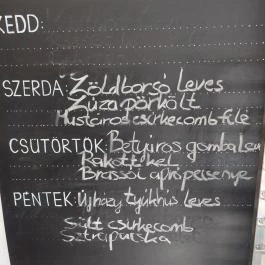 KEDD:
SZERDA: Zöldborsó leves
Zúza pörkölt
Mustáros csirkecombfilé
CSÜTÖRTÖK: Betyáros gombaleves
Rakott kel
Brassói aprópecsenye
PÉNTEK: Újházy tyúkhús leves
Sült csirkecomb
Sztrapacska